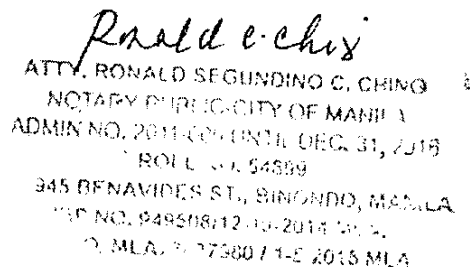 Ronald C. Ching
ATTY. RONALD SEGUNDINO C. CHING
NOTARY PUBLIC-CITY OF MANILA
ADMIN NO. UNTIL DEC. 31,
ROLL NO. 54899
945 BENAVIDES ST., BINONDO, MANILA
NO. 949508/12 2014
MLA. 2015 MLA